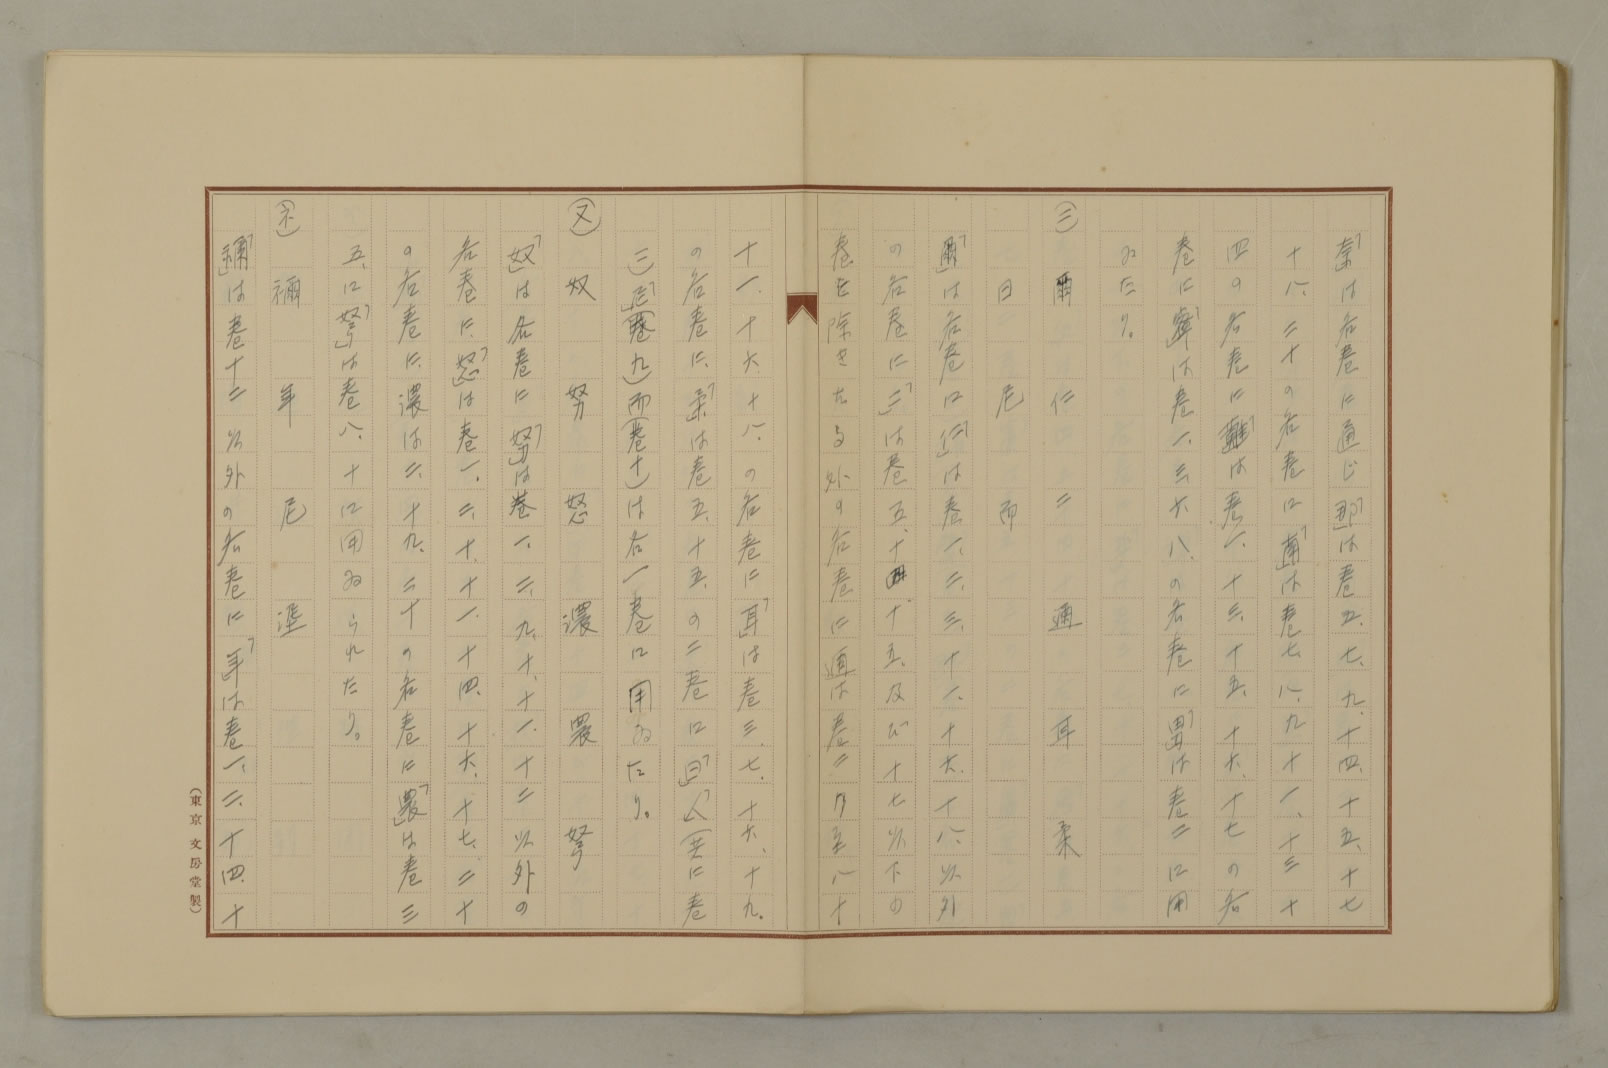 「奈」は各巻に通じ「那」は巻五、七、九、十四、十五、十七
十八、二十の各巻に「南」は巻七、八、九、十一、十三、十
四の各巻に「難」は巻一、十三、十五、十六、十七の各
巻に「寧」は巻一、三、六、八、の各巻に「男」は巻二に用
ゐたり。
(ニ) 爾 仁 二 邇 耳 柔
日 尼 而
「爾」は各巻に「仁」は巻一、二、三、十一、十六、十八、以外
の各巻に「二」は巻五、十四、十五、及び十七以下の
巻を除きたる外の各巻に邇は巻二乃至八、十
十一、十六、十八、の各巻に「耳」は巻三、七、十六、十九、
の各巻に、「柔」は巻五、十五、の二巻に「日」(共に巻
三)「尼」(巻九)而(巻十)は各一巻に用ゐたり。
(ヌ) 奴 努 怒 濃 農 弩
「奴」は各巻に「努」は巻一、二、九、十、十一、十二以外の
各巻に、「怒」は巻一、二、十、十一、十四、十六、十七、二十
の各巻に、濃は二、十九、二十の各巻に「農」は巻三
五、に「弩」は巻八、十に用ゐられたり。
(ネ) 禰 年 尼 埿
「禰」は巻十二以外の各巻に「年」は巻一、二、十四、十
(東京 文房堂製)